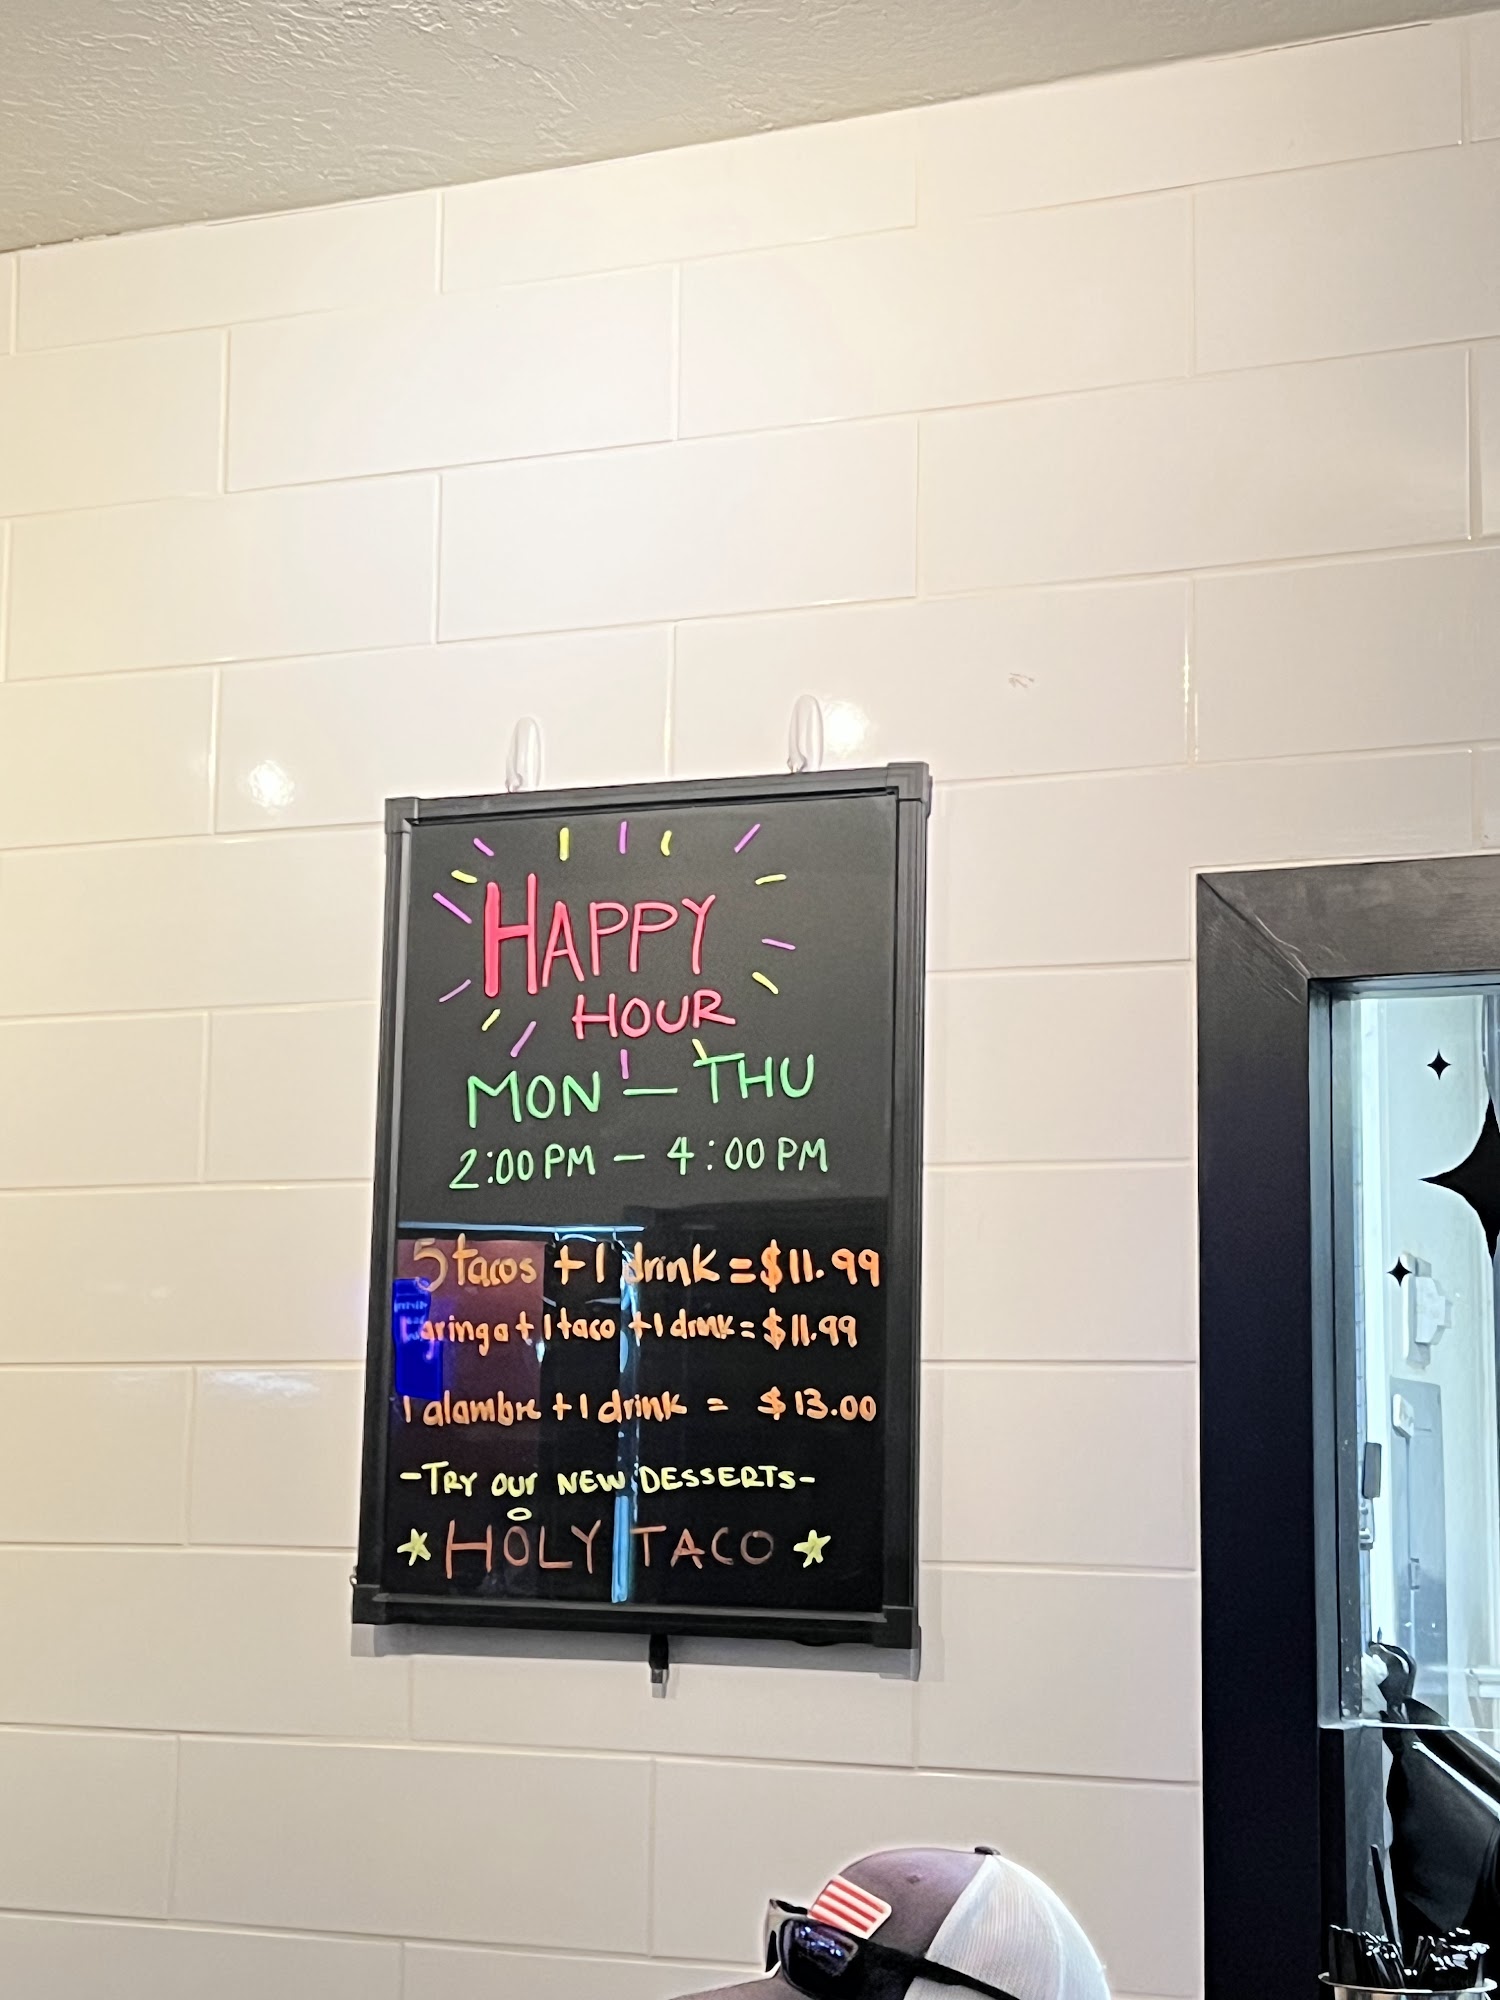 HAPPY
HOUR
MON — THU
2:00 PM — 4:00 PM
5 tacos + 1 drink = $11.99
1 gringa + 1 taco + 1 drink = $11.99
1 alambre + 1 drink = $13.00
-TRY OUr NEW DESSERTS-
HOLY TACO